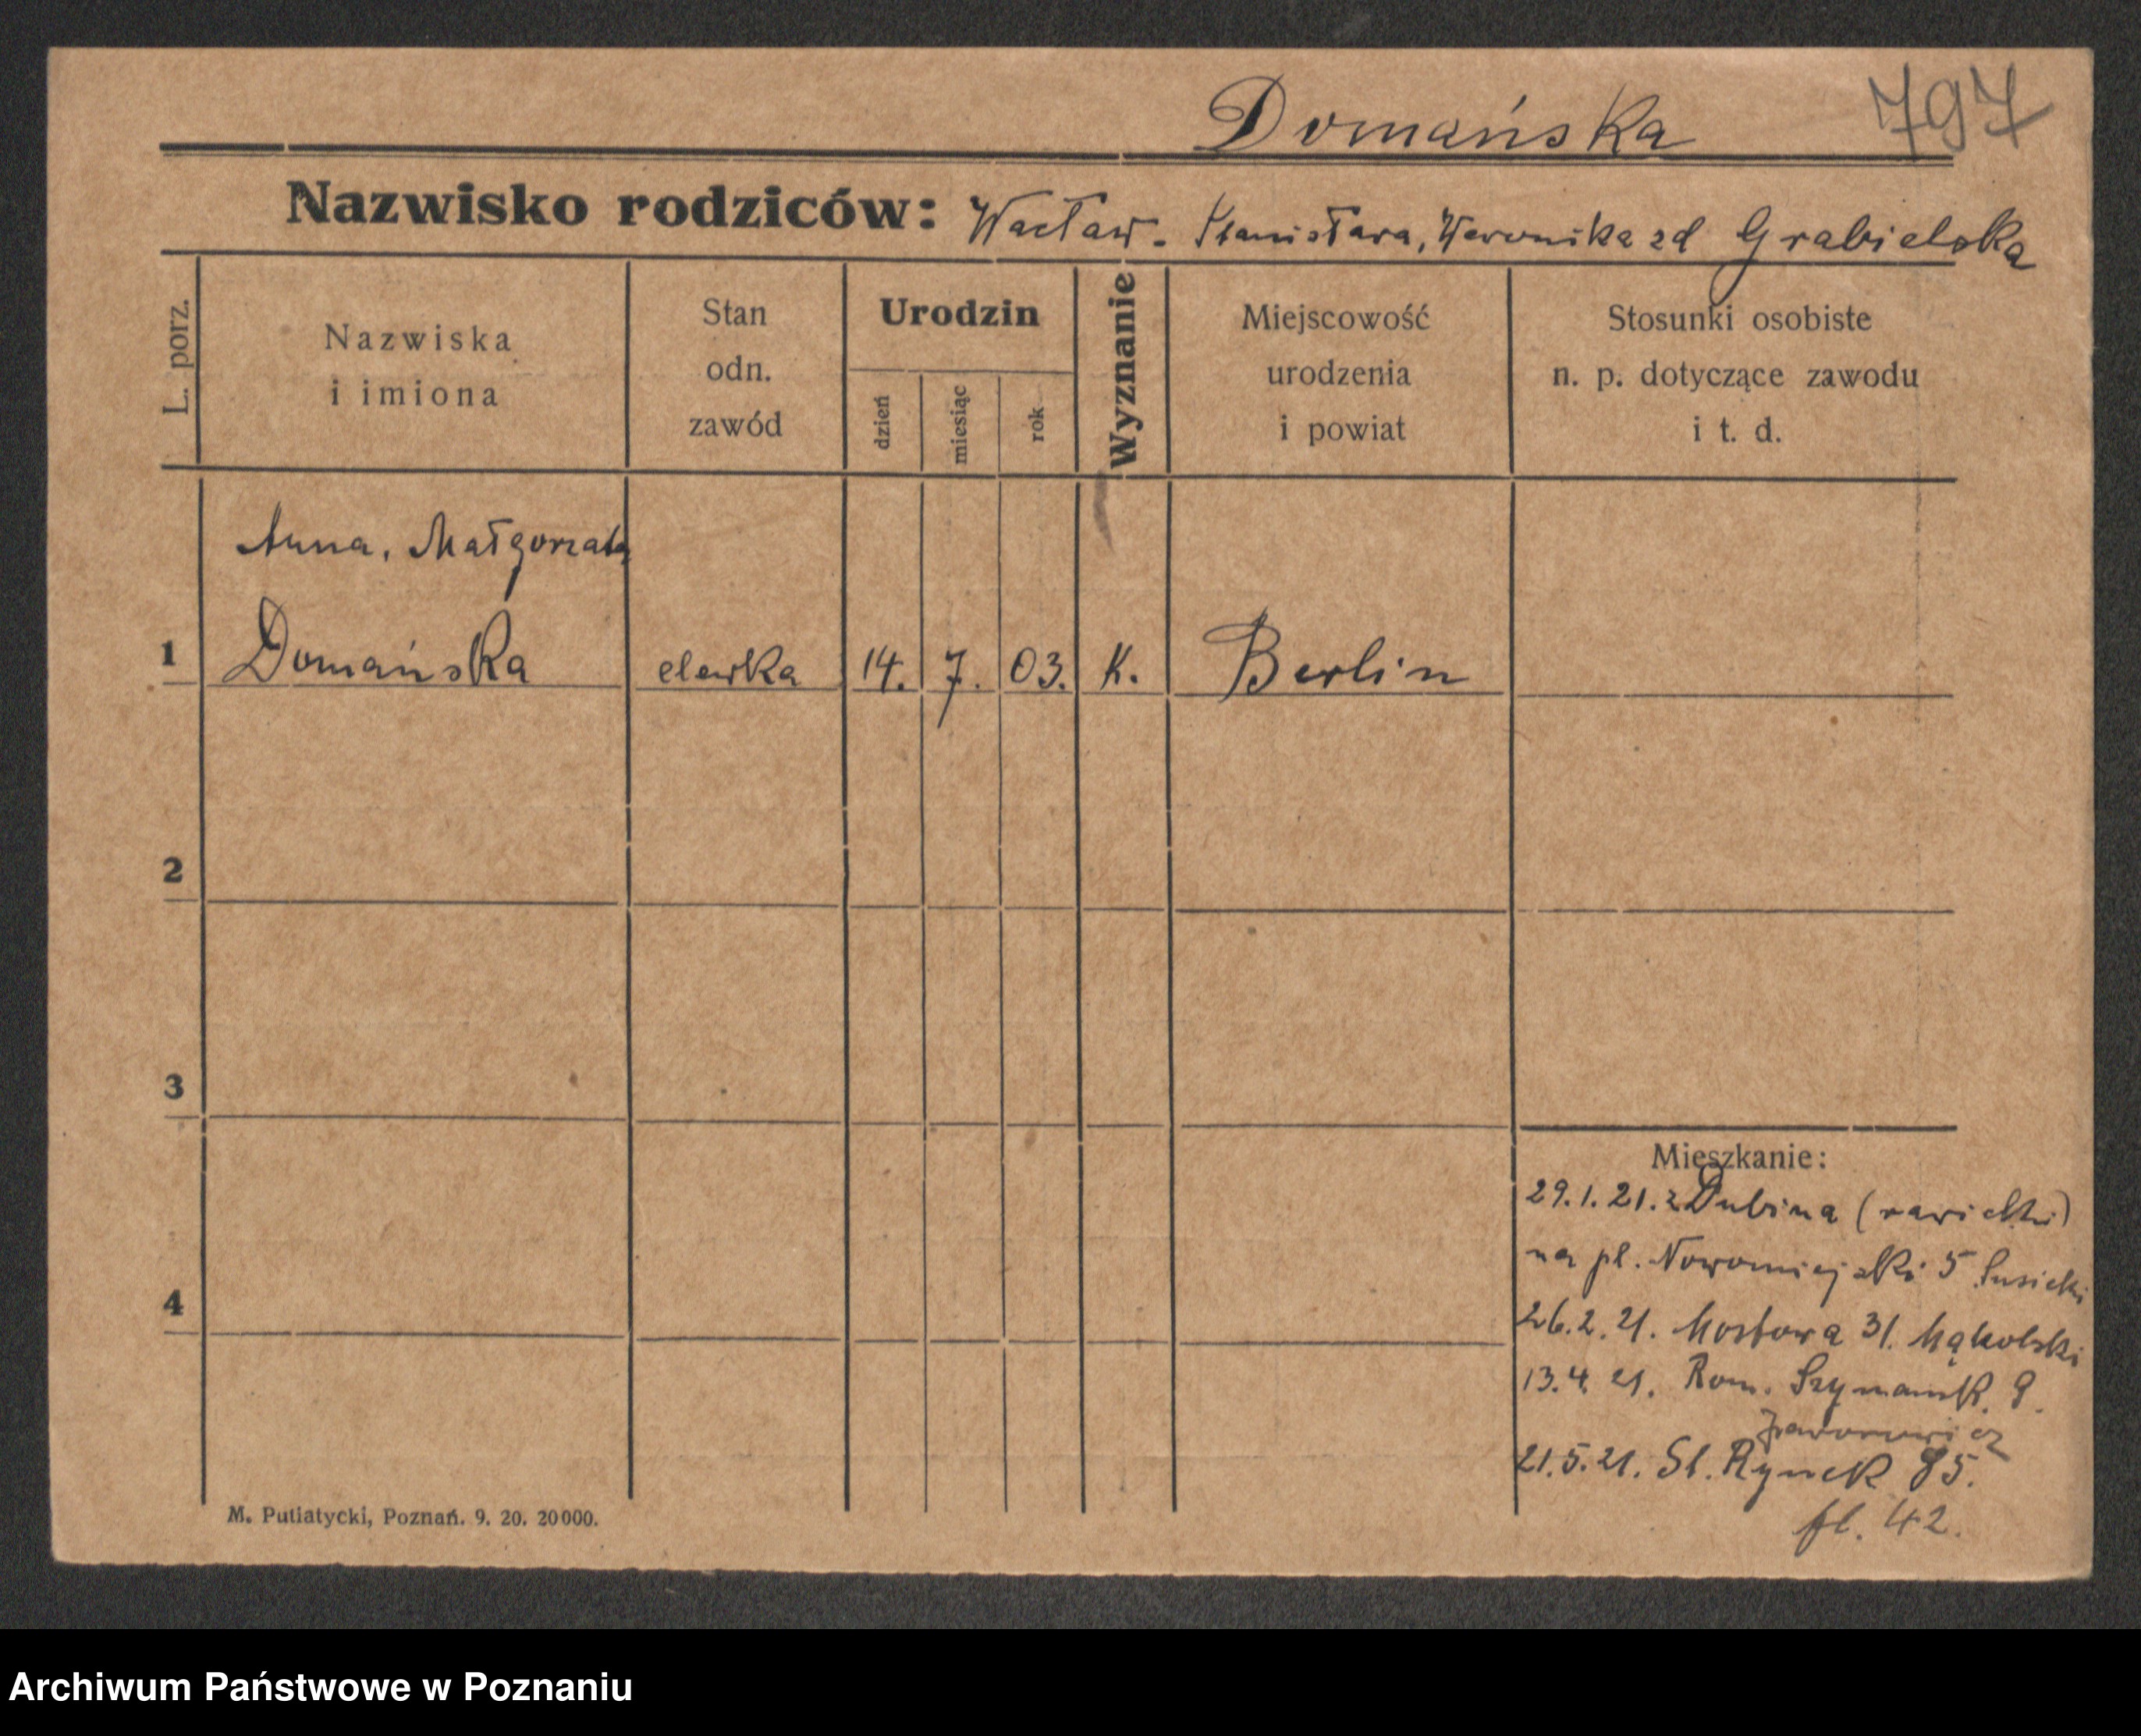 Domańska 797
Nazwisko rodziców: Wacław. Stanisława, Weronika zd Grabielska
L. porz.
Nazwiska
i imiona
Stan
odn.
zawód
Urodzin
dzień
miesiąc
rok
Wyznanie
Miejscowość
urodzenia
i powiat
Stosunki osobiste
n. p. dotyczące zawodu
i t. d.
Anna, Małgorzata
1 Domańska elewka 14. 7. 03. K. Berlin
2
3
4
Mieszkanie:
29.1.21. z Dubina (rawicki)
na pl. Nowomiejski 5
26.2.21. Mostowa 31. Mąkolski
13.4.21. Rom. Szymańsk. 9.
21.5.21. St. Rynek 85.
fl. 42.
M. Putiatycki, Poznań. 9. 20. 20000.
Archiwum Państwowe w Poznaniu